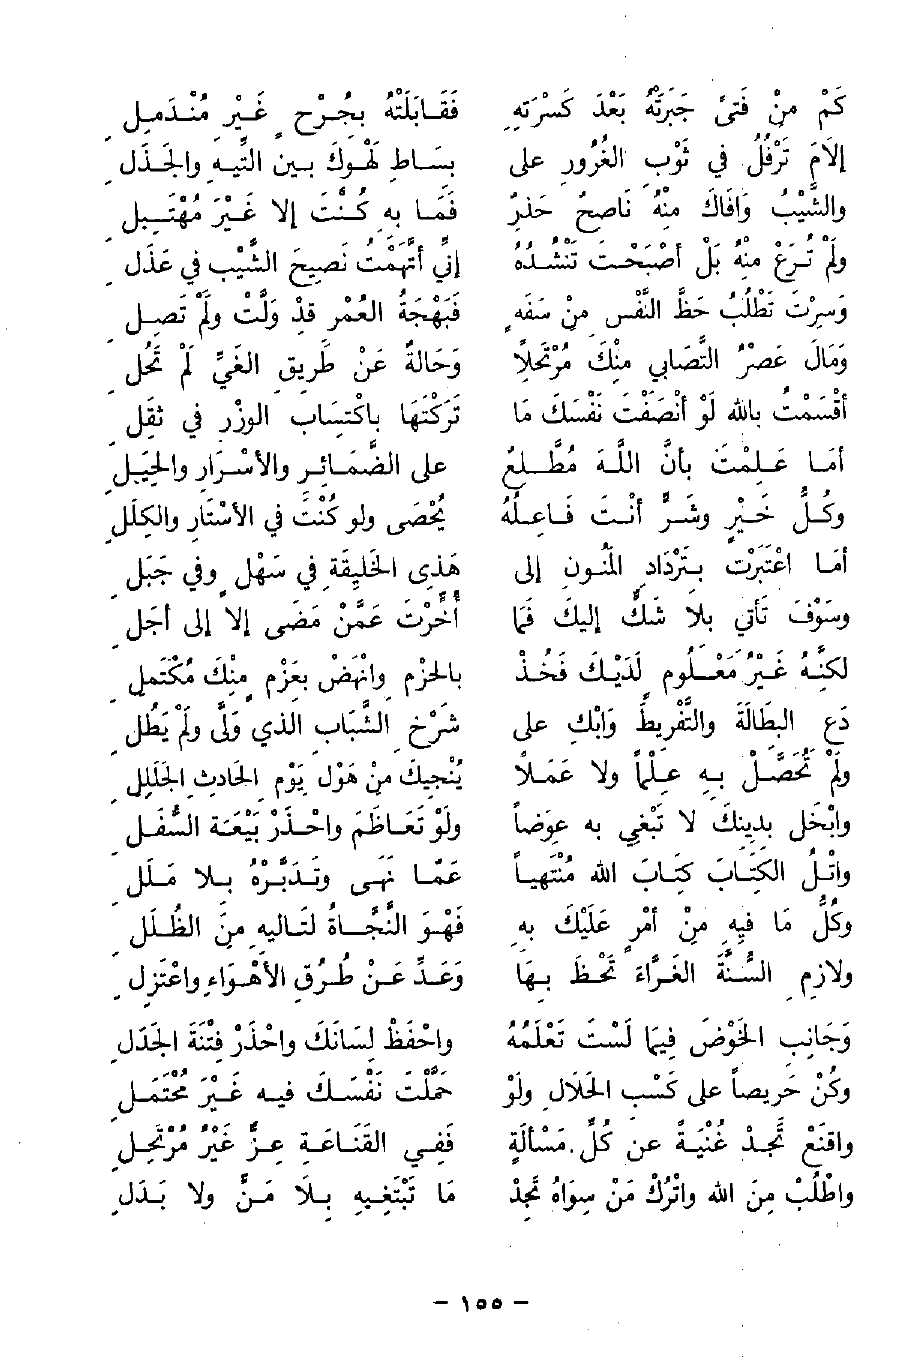 كَمْ مِنْ فَتًى جَبَرَتْهُ بَعْدَ كَسْرَتِهِ فَقَابَلَتْهُ بِجُرْحٍ غَيْرِ مُنْدَمِلِ
إِلَامَ تَرْفُلُ فِي ثَوْبِ الْغُرُورِ عَلَى بِسَاطِ لَهْوِكَ بَيْنَ التِّيهِ وَالْجَذَلِ
وَالشَّيْبُ وَافَاكَ مِنْهُ نَاصِحٌ حَذِرٌ فَمَا بِهِ كُنْتَ إِلَّا غَيْرَ مُهْتَبِلِ
وَلَمْ تُرَعْ مِنْهُ بَلْ أَصْبَحْتَ تُنْشِدُهُ إِنِّي أُتُّهِمْتُ نَصِيحَ الشَّيْبِ فِي عَذَلِ
وَسِرْتَ تَطْلُبُ حَظَّ النَّفْسِ مِنْ سَفَهٍ فَبَهْجَةُ الْعُمْرِ قَدْ وَلَّتْ وَلَمْ تَصِلِ
وَمَالَ عَصْرُ التَّصَابِي مِنْكَ مُرْتَحِلًا وَحَالَةٌ عَنْ طَرِيقِ الْغَيِّ لَمْ تَحُلِ
أَقْسَمْتُ بِاللهِ لَوْ أَنْصَفْتَ نَفْسَكَ مَا تَرَكْتَهَا بِاكْتِسَابِ الْوِزْرِ فِي ثِقَلِ
أَمَا عَلِمْتَ بِأَنَّ اللهَ مُطَّلِعٌ عَلَى الضَّمَائِرِ وَالْأَسْرَارِ وَالْحِيَلِ
وَكُلُّ خَيْرٍ وَشَرٍّ أَنْتَ فَاعِلُهُ يُحْصَى وَلَوْ كُنْتَ فِي الْأَسْتَارِ وَالْكِلَلِ
أَمَا اعْتَبَرْتَ بِتَرْدَادِ الْمَنُونِ إِلَى هَذِي الْخَلِيقَةِ فِي سَهْلٍ وَفِي جَبَلِ
وَسَوْفَ تَأْتِي بِلَا شَكٍّ إِلَيْكَ فَمَا أُخِّرْتَ عَمَّنْ مَضَى إِلَّا إِلَى أَجَلِ
لَكِنَّهُ غَيْرُ مَعْلُومٍ لَدَيْكَ فَخُذْ بِالْحَزْمِ وَانْهَضْ بِعَزْمٍ مِنْكَ مُكْتَمِلِ
دَعِ الْبَطَالَةَ وَالتَّفْرِيطَ وَابْكِ عَلَى شَرْخِ الشَّبَابِ الَّذِي وَلَّى وَلَمْ يَطُلِ
وَلَمْ تُحَصِّلْ بِهِ عِلْمًا وَلَا عَمَلًا يُنْجِيكَ مِنْ هَوْلِ يَوْمِ الْحَادِثِ الْجَلَلِ
وَابْخَلْ بِدِينِكَ لَا تَبْغِي بِهِ عِوَضًا وَلَوْ تَعَاظَمَ وَاحْذَرْ بَيْعَةَ السَّفَلِ
وَاتْلُ الْكِتَابَ كِتَابَ اللهِ مُنْتَهِيًا عَمَّا نَهَى وَتَدَبَّرْهُ بِلَا مَلَلِ
وَكُلُّ مَا فِيهِ مِنْ أَمْرٍ عَلَيْكَ بِهِ فَهْوَ النَّجَاةُ لِتَالِيهِ مِنَ الظُّلَلِ
وَلَازِمِ السُّنَّةَ الْغَرَّاءَ تَحْظَ بِهَا وَعَدِّ عَنْ طُرُقِ الْأَهْوَاءِ وَاعْتَزِلِ
وَجَانِبِ الْخَوْضَ فِيمَا لَسْتَ تَعْلَمُهُ وَاحْفَظْ لِسَانَكَ وَاحْذَرْ فِتْنَةَ الْجَدَلِ
وَكُنْ حَرِيصًا عَلَى كَسْبِ الْحَلَالِ وَلَوْ حَمَلْتَ نَفْسَكَ فِيهِ غَيْرَ مُحْتَمَلِ
وَاقْنَعْ تَجِدْ غُنْيَةً عَنْ كُلِّ مَسْأَلَةٍ فَفِي الْقَنَاعَةِ عِزٌّ غَيْرُ مُرْتَحِلِ
وَاطْلُبْ مِنَ اللهِ وَاتْرُكْ مَنْ سِوَاهُ تَجِدْ مَا تَبْتَغِيهِ بِلَا مَنٍّ وَلَا بَدَلِ
- ١٥٥ -